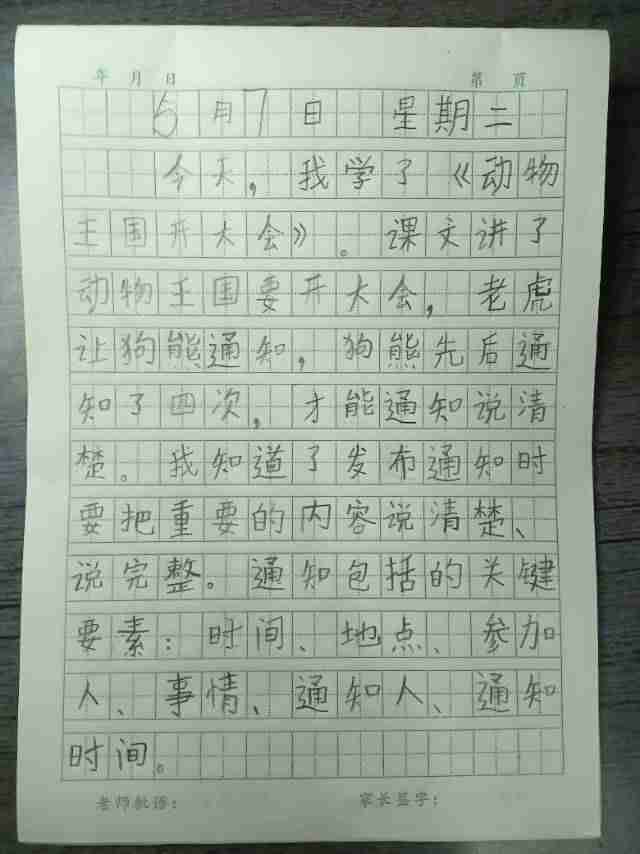 年 月 日 第 页
5月7日 星期二
今天，我学了《动物
王国开大会》。课文讲了
动物王国要开大会，老虎
让狗熊通知，狗熊先后通
知了四次，才能通知说清
楚。我知道了发布通知时
要把重要的内容说清楚、
说完整。通知包括的关键
要素：时间、地点、参加
人、事情、通知人、通知
时间。
老师批语： 家长签字：